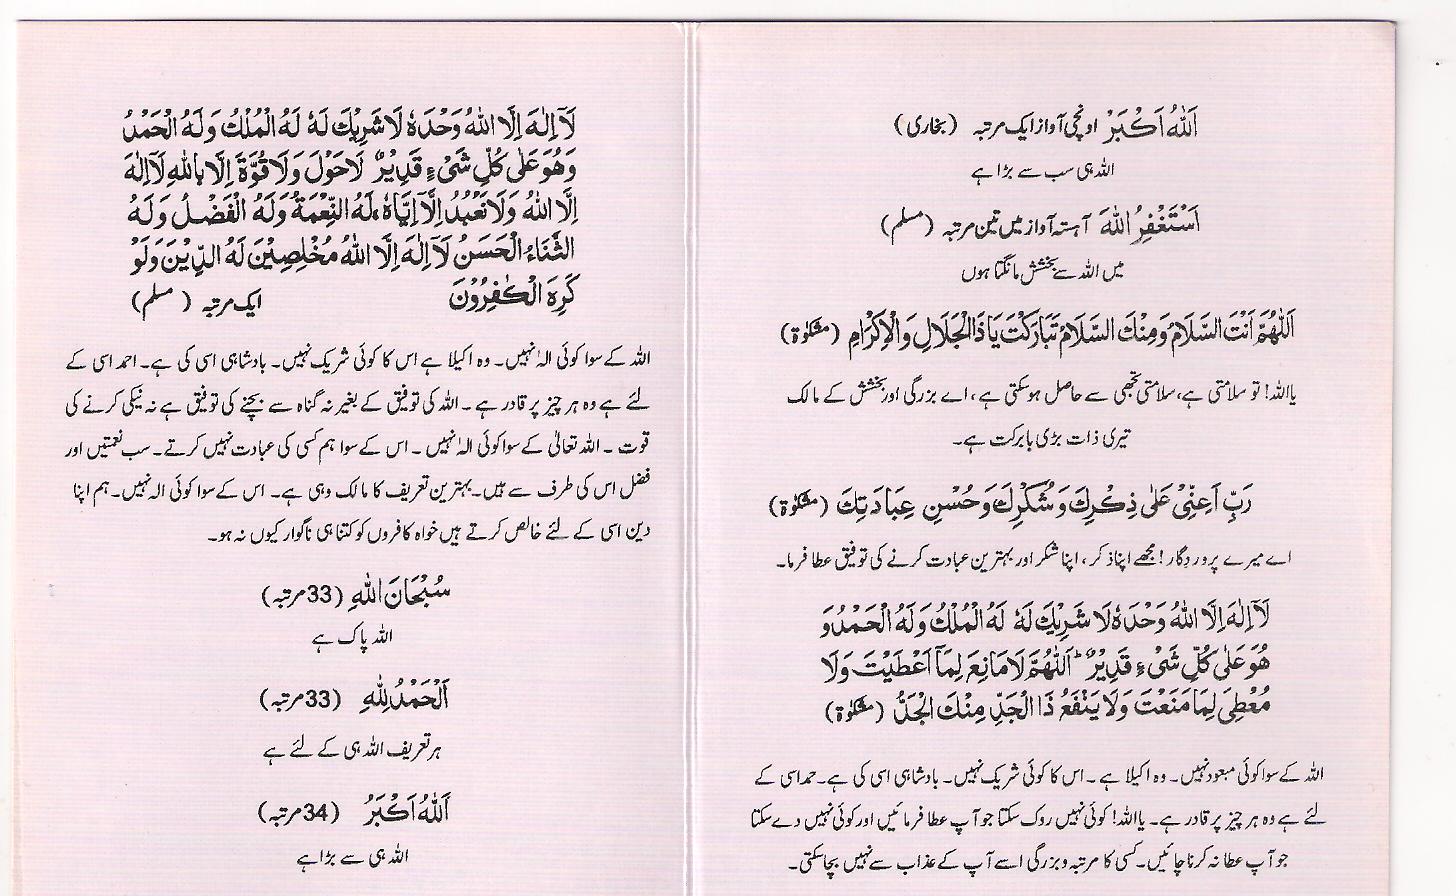 اَللّٰهُ اَكْبَرْ اونچی آواز ایک مرتبہ (بخاری)
اللہ ہی سب سے بڑا ہے
اَسْتَغْفِرُ اللّٰهَ آہستہ آواز میں تین مرتبہ (مسلم)
میں اللہ سے بخشش مانگتا ہوں
اَللّٰهُمَّ اَنْتَ السَّلَامُ وَمِنْكَ السَّلَامُ تَبَارَكْتَ يَاذَا الْجَلَالِ وَالْاِكْرَامِ (مشکوٰۃ)
یااللہ! تو سلامتی ہے، سلامتی تجھی سے حاصل ہوسکتی ہے، اے بزرگی اور بخشش کے مالک
تیری ذات بڑی بابرکت ہے۔
رَبِّ اَعِنِّىْ عَلٰى ذِكْرِكَ وَشُكْرِكَ وَحُسْنِ عِبَادَتِكَ (مشکوٰۃ)
اے میرے پروردگار! مجھے اپنا ذکر، اپنا شکر اور بہترین عبادت کرنے کی توفیق عطا فرما۔
لَآ اِلٰهَ اِلَّا اللّٰهُ وَحْدَهٗ لَا شَرِيْكَ لَهٗ لَهُ الْمُلْكُ وَلَهُ الْحَمْدُ وَ
هُوَ عَلٰى كُلِّ شَىْءٍ قَدِيْرٌ ؕ اَللّٰهُمَّ لَا مَانِعَ لِمَآ اَعْطَيْتَ وَلَا
مُعْطِىَ لِمَا مَنَعْتَ وَلَا يَنْفَعُ ذَا الْجَدِّ مِنْكَ الْجَدُّ (مشکوٰۃ)
اللہ کے سوا کوئی معبود نہیں۔ وہ اکیلا ہے۔ اس کا کوئی شریک نہیں۔ بادشاہی اسی کی ہے۔ حمد اسی کے
لئے ہے وہ ہر چیز پر قادر ہے۔ یااللہ! کوئی نہیں روک سکتا جو آپ عطا فرمائیں اور کوئی نہیں دے سکتا
جو آپ عطا نہ کرنا چائیں۔ کسی کا مرتبہ و بزرگی اسے آپ کے عذاب سے نہیں بچا سکتی۔
لَآ اِلٰهَ اِلَّا اللّٰهُ وَحْدَهٗ لَا شَرِيْكَ لَهٗ لَهُ الْمُلْكُ وَلَهُ الْحَمْدُ
وَهُوَ عَلٰى كُلِّ شَىْءٍ قَدِيْرٌ لَا حَوْلَ وَلَا قُوَّةَ اِلَّا بِاللّٰهِ لَآ اِلٰهَ
اِلَّا اللّٰهُ وَلَا نَعْبُدُ اِلَّآ اِيَّاهُ، لَهُ النِّعْمَةُ وَلَهُ الْفَضْلُ وَلَهُ
الثَّنَاءُ الْحَسَنُ لَآ اِلٰهَ اِلَّا اللّٰهُ مُخْلِصِيْنَ لَهُ الدِّيْنَ وَلَوْ
كَرِهَ الْكٰفِرُوْنَ ایک مرتبہ (مسلم)
اللہ کے سوا کوئی الٰہ نہیں۔ وہ اکیلا ہے اس کا کوئی شریک نہیں۔ بادشاہی اسی کی ہے۔ احمد اسی کے
لئے ہے وہ ہر چیز پر قادر ہے۔ اللہ کی توفیق کے بغیر نہ گناہ سے بچنے کی توفیق ہے نہ نیکی کرنے کی
قوت۔ اللہ تعالیٰ کے سوا کوئی الٰہ نہیں۔ اس کے سوا ہم کسی کی عبادت نہیں کرتے۔ سب نعمتیں اور
فضل اس کی طرف سے ہیں۔ بہترین تعریف کا مالک وہی ہے۔ اس کے سوا کوئی الہ نہیں۔ ہم اپنا
دین اسی کے لئے خالص کرتے ہیں خواہ کافروں کو کتنا ہی ناگوار کیوں نہ ہو۔
سُبْحَانَ اللّٰهِ (33 مرتبہ)
اللہ پاک ہے
اَلْحَمْدُ لِلّٰهِ (33 مرتبہ)
ہر تعریف اللہ ہی کے لئے ہے
اَللّٰهُ اَكْبَرُ (34 مرتبہ)
اللہ ہی سے بڑا ہے